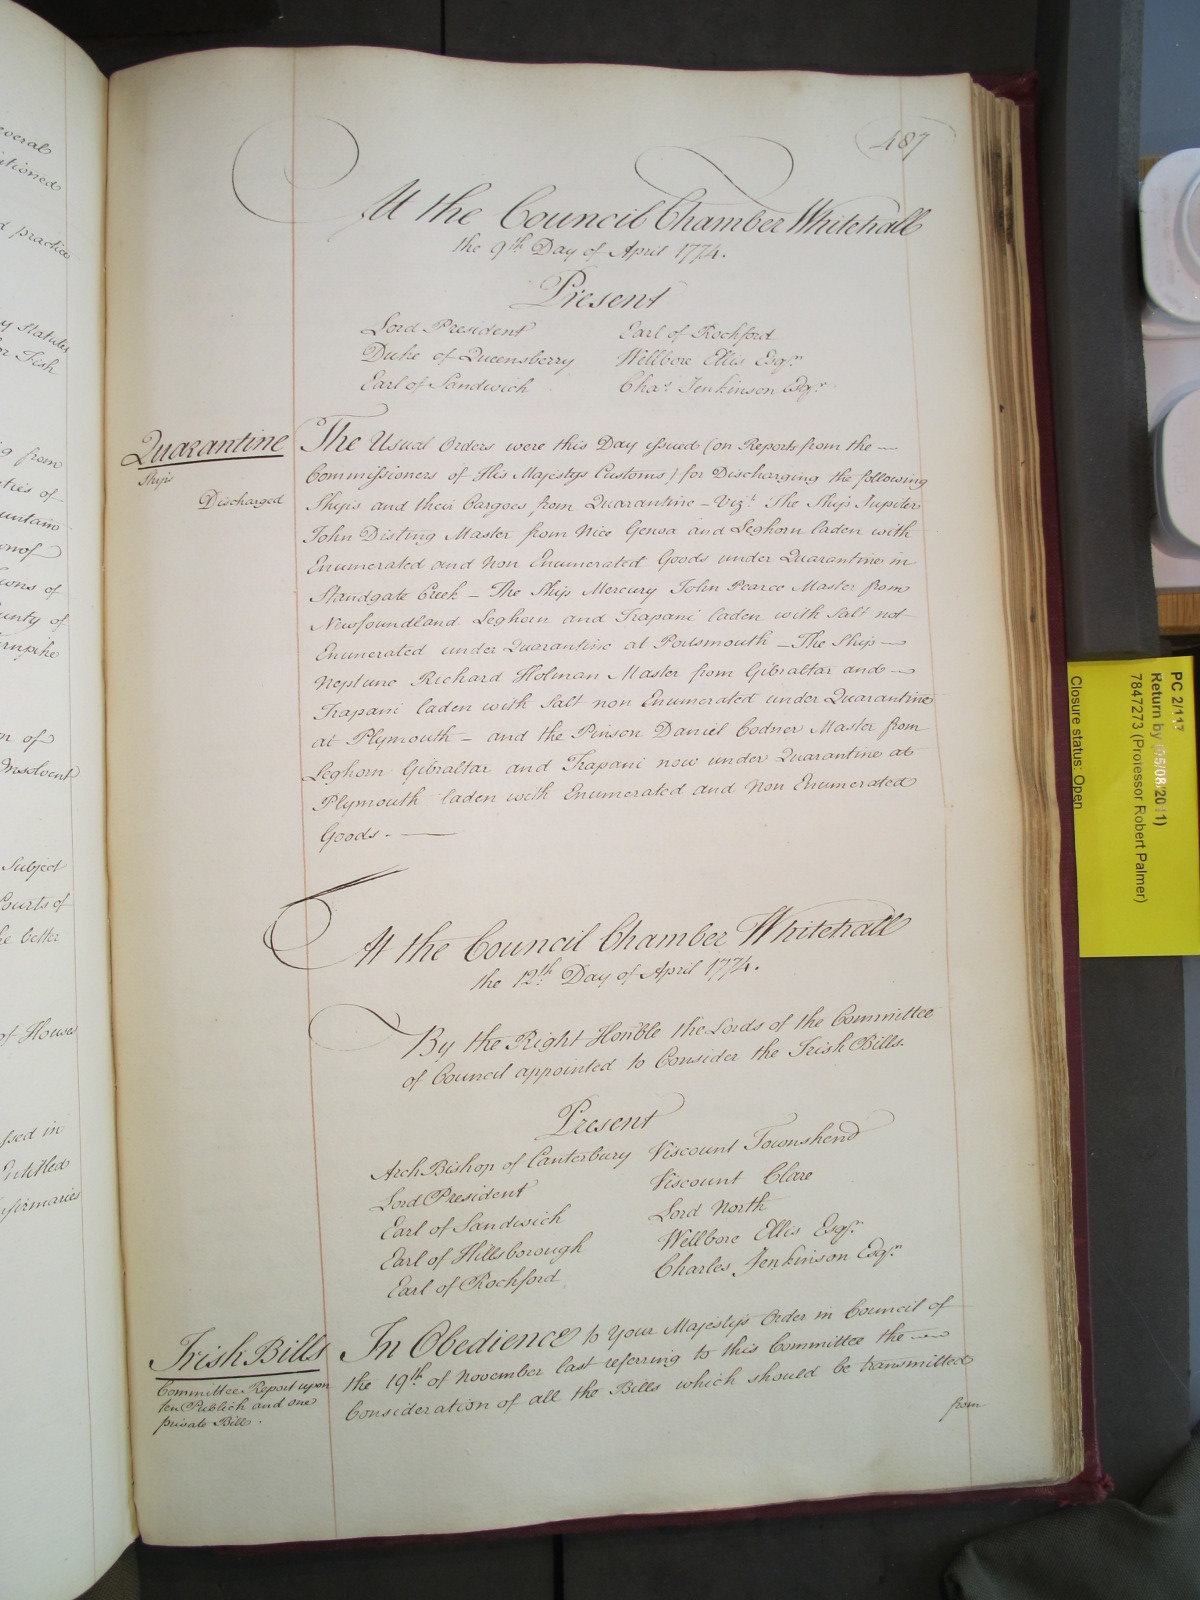 several
itioned
d practice
y Statutes
or Fish
g from
ties of
untain
n of
ions of
unty of
urnpike
n of
Insolvent
Subject
Courts of
he better
of Houses
ssed in
Intitled
nfirmaries
487
At the Council Chamber Whitehall
the 9th Day of April 1774.
Present
Lord President Earl of Rochford
Duke of Queensberry Wellbore Ellis Esqr.
Earl of Sandwich Chas. Jenkinson Esqr.
Quarantine
Ships
Discharged
The Usual Orders were this Day issued (on Reports from the
Commissioners of His Majestys Customs) for Discharging the following
Ships and their Cargoes from Quarantine - Vizt. The Ship Jupiter
John Disting Master from Nice Genoa and Leghorn laden with
Enumerated and Non Enumerated Goods under Quarantine in
Standgate Creek - The Ship Mercury John Pearce Master from
Newfoundland Leghorn and Trapani laden with Salt not
Enumerated under Quarantine at Portsmouth - The Ship
Neptune Richard Holman Master from Gibraltar and
Trapani laden with Salt non Enumerated under Quarantine
at Plymouth - and the Pinson Daniel Codner Master from
Leghorn Gibraltar and Trapani now under Quarantine at
Plymouth laden with Enumerated and Non Enumerated
Goods. -
At the Council Chamber Whitehall
the 12th Day of April 1774.
By the Right Honble the Lords of the Committee
of Council appointed to Consider the Irish Bills.
Present
Arch Bishop of Canterbury Viscount Townshend
Lord President Viscount Clare
Earl of Sandwich Lord North
Earl of Hillsborough Wellbore Ellis Esqr.
Earl of Rochford Charles Jenkinson Esqr.
Irish Bills
Committee Report upon
ten Publick and one
private Bill.
In Obedience to Your Majestys Order in Council of
the 19th of November last referring to this Committee the
Consideration of all the Bills which should be transmitted
from
PC 2/117
Return by (05/08/2011)
7847273 (Professor Robert Palmer)
Closure status: Open